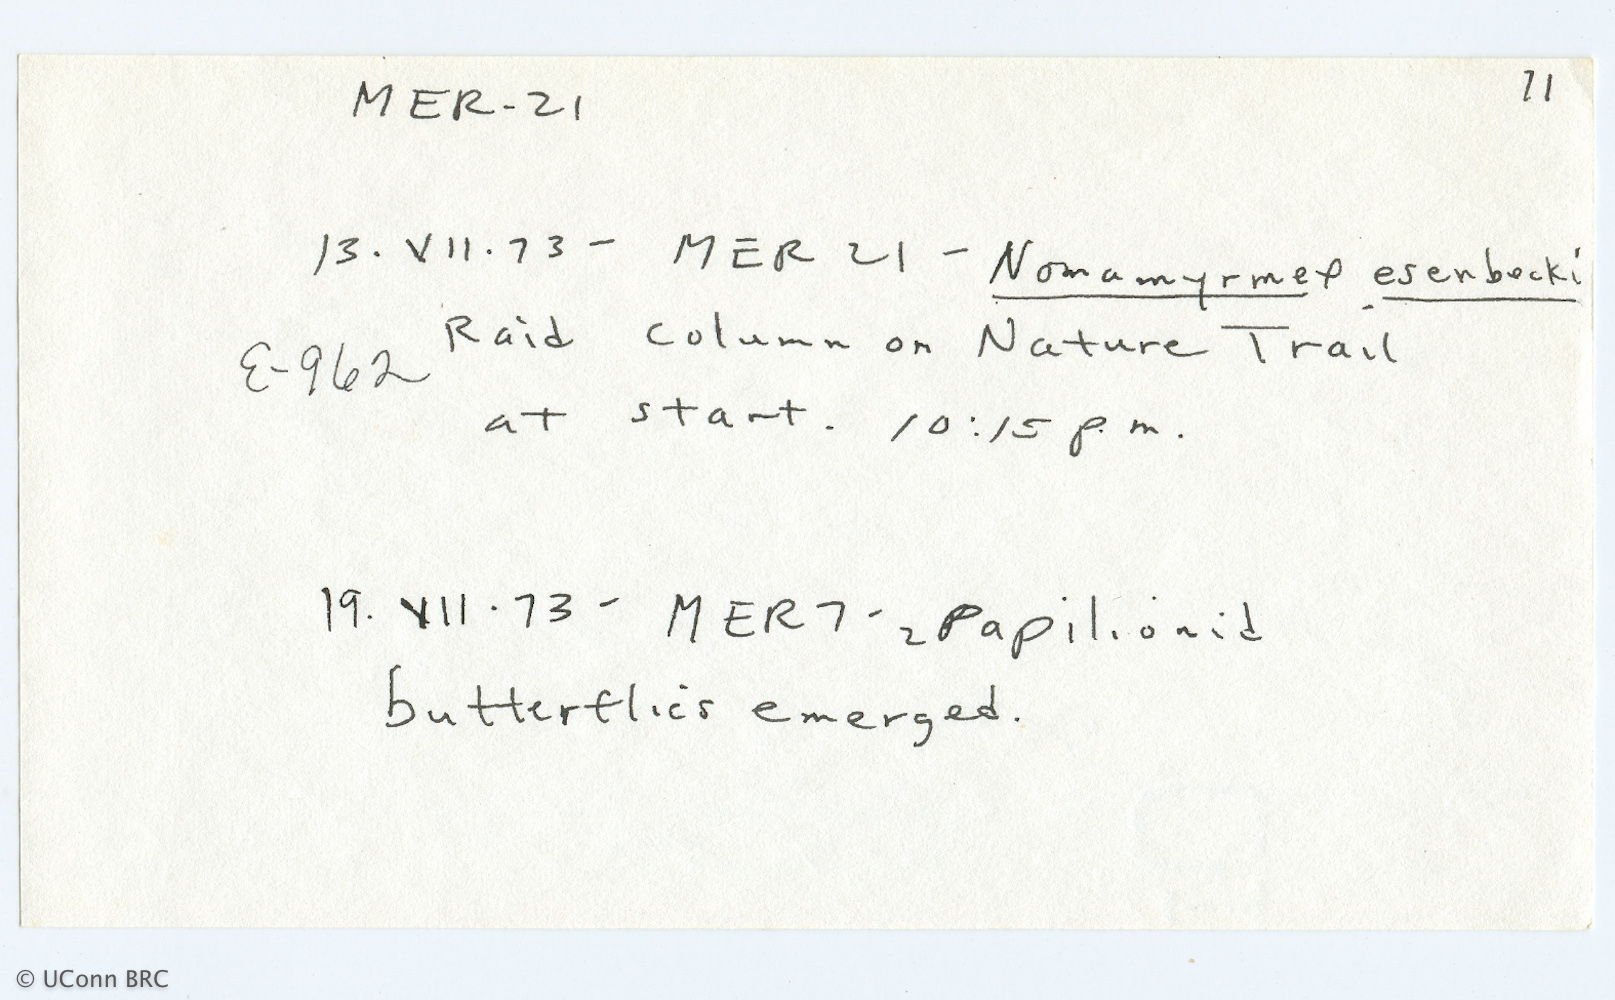 MER-21
11
13.VII.73 - MER 21 - Nomamyrmex esenbecki
E-962 Raid column on Nature Trail
at start. 10:15 p.m.
19.VII.73 - MER7 - 2 Papilionid
butterflies emerged.
© UConn BRC